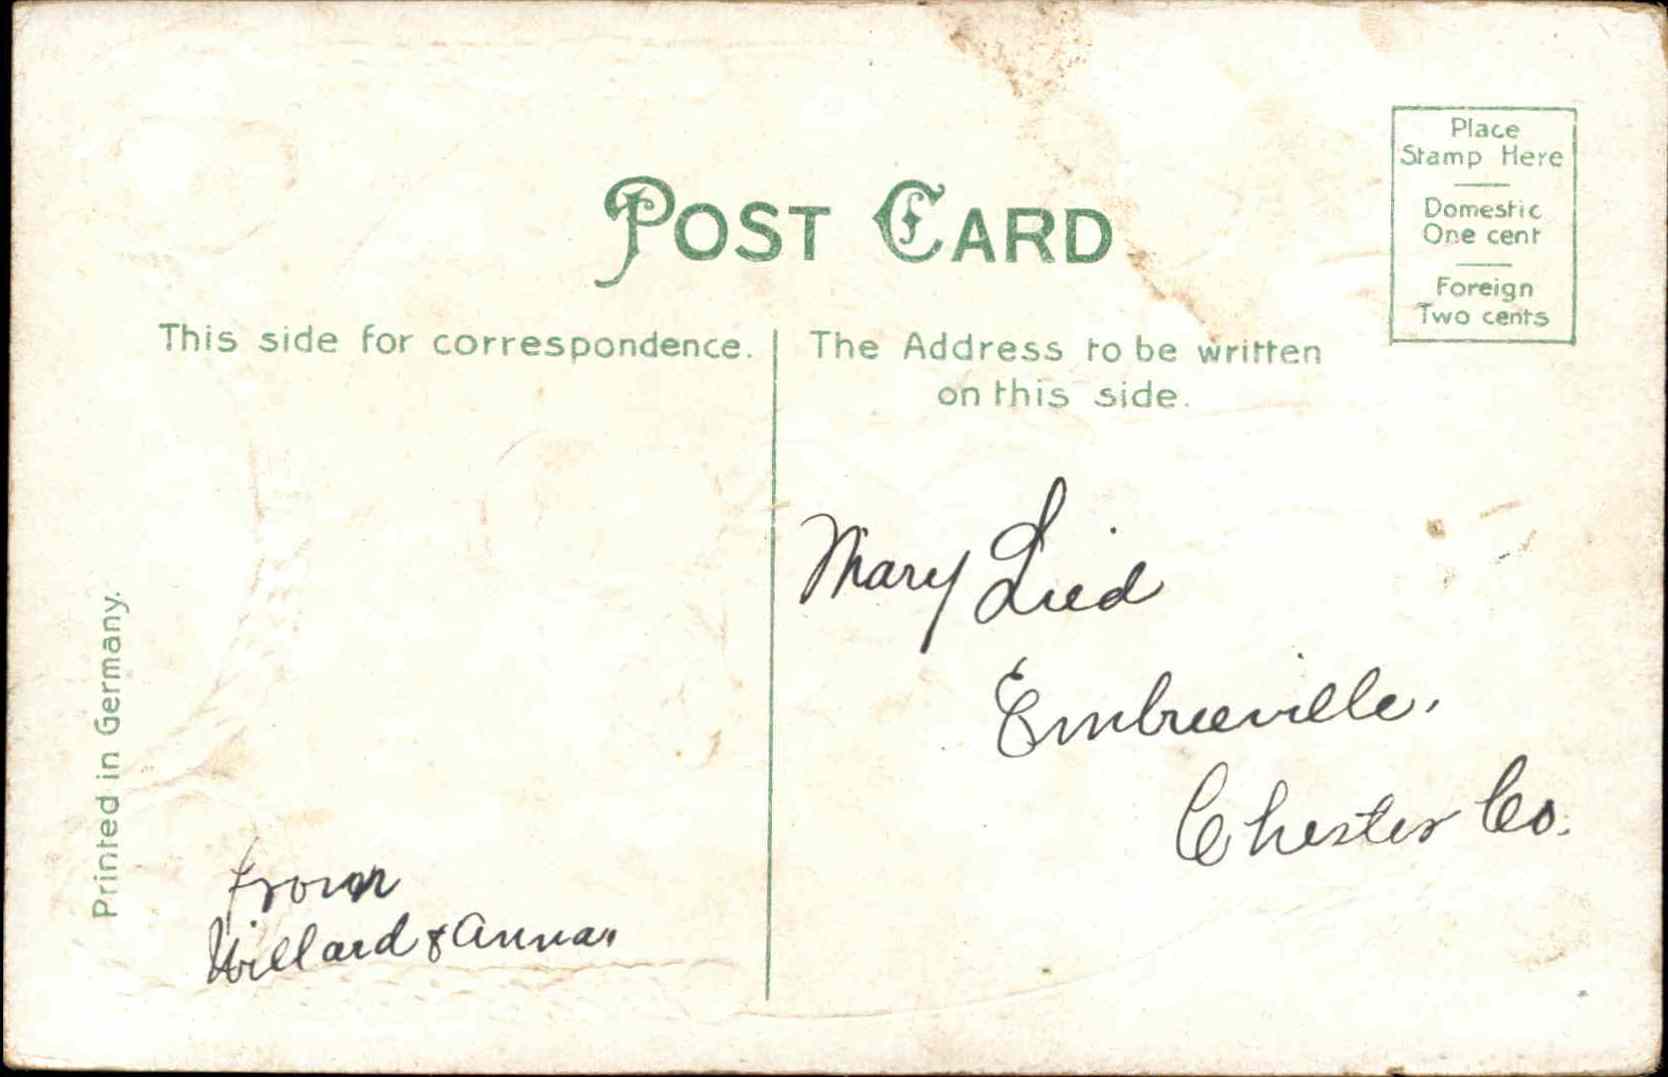 POST CARD
Place
Stamp Here
Domestic
One cent
Foreign
Two cents
This side for correspondence.
The Address to be written
on this side.
Mary Lied
Embreeville,
Chester Co.
from
Willard & Anna.
Printed in Germany.